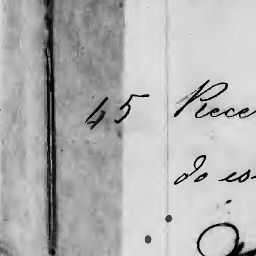 45 Rece
do es